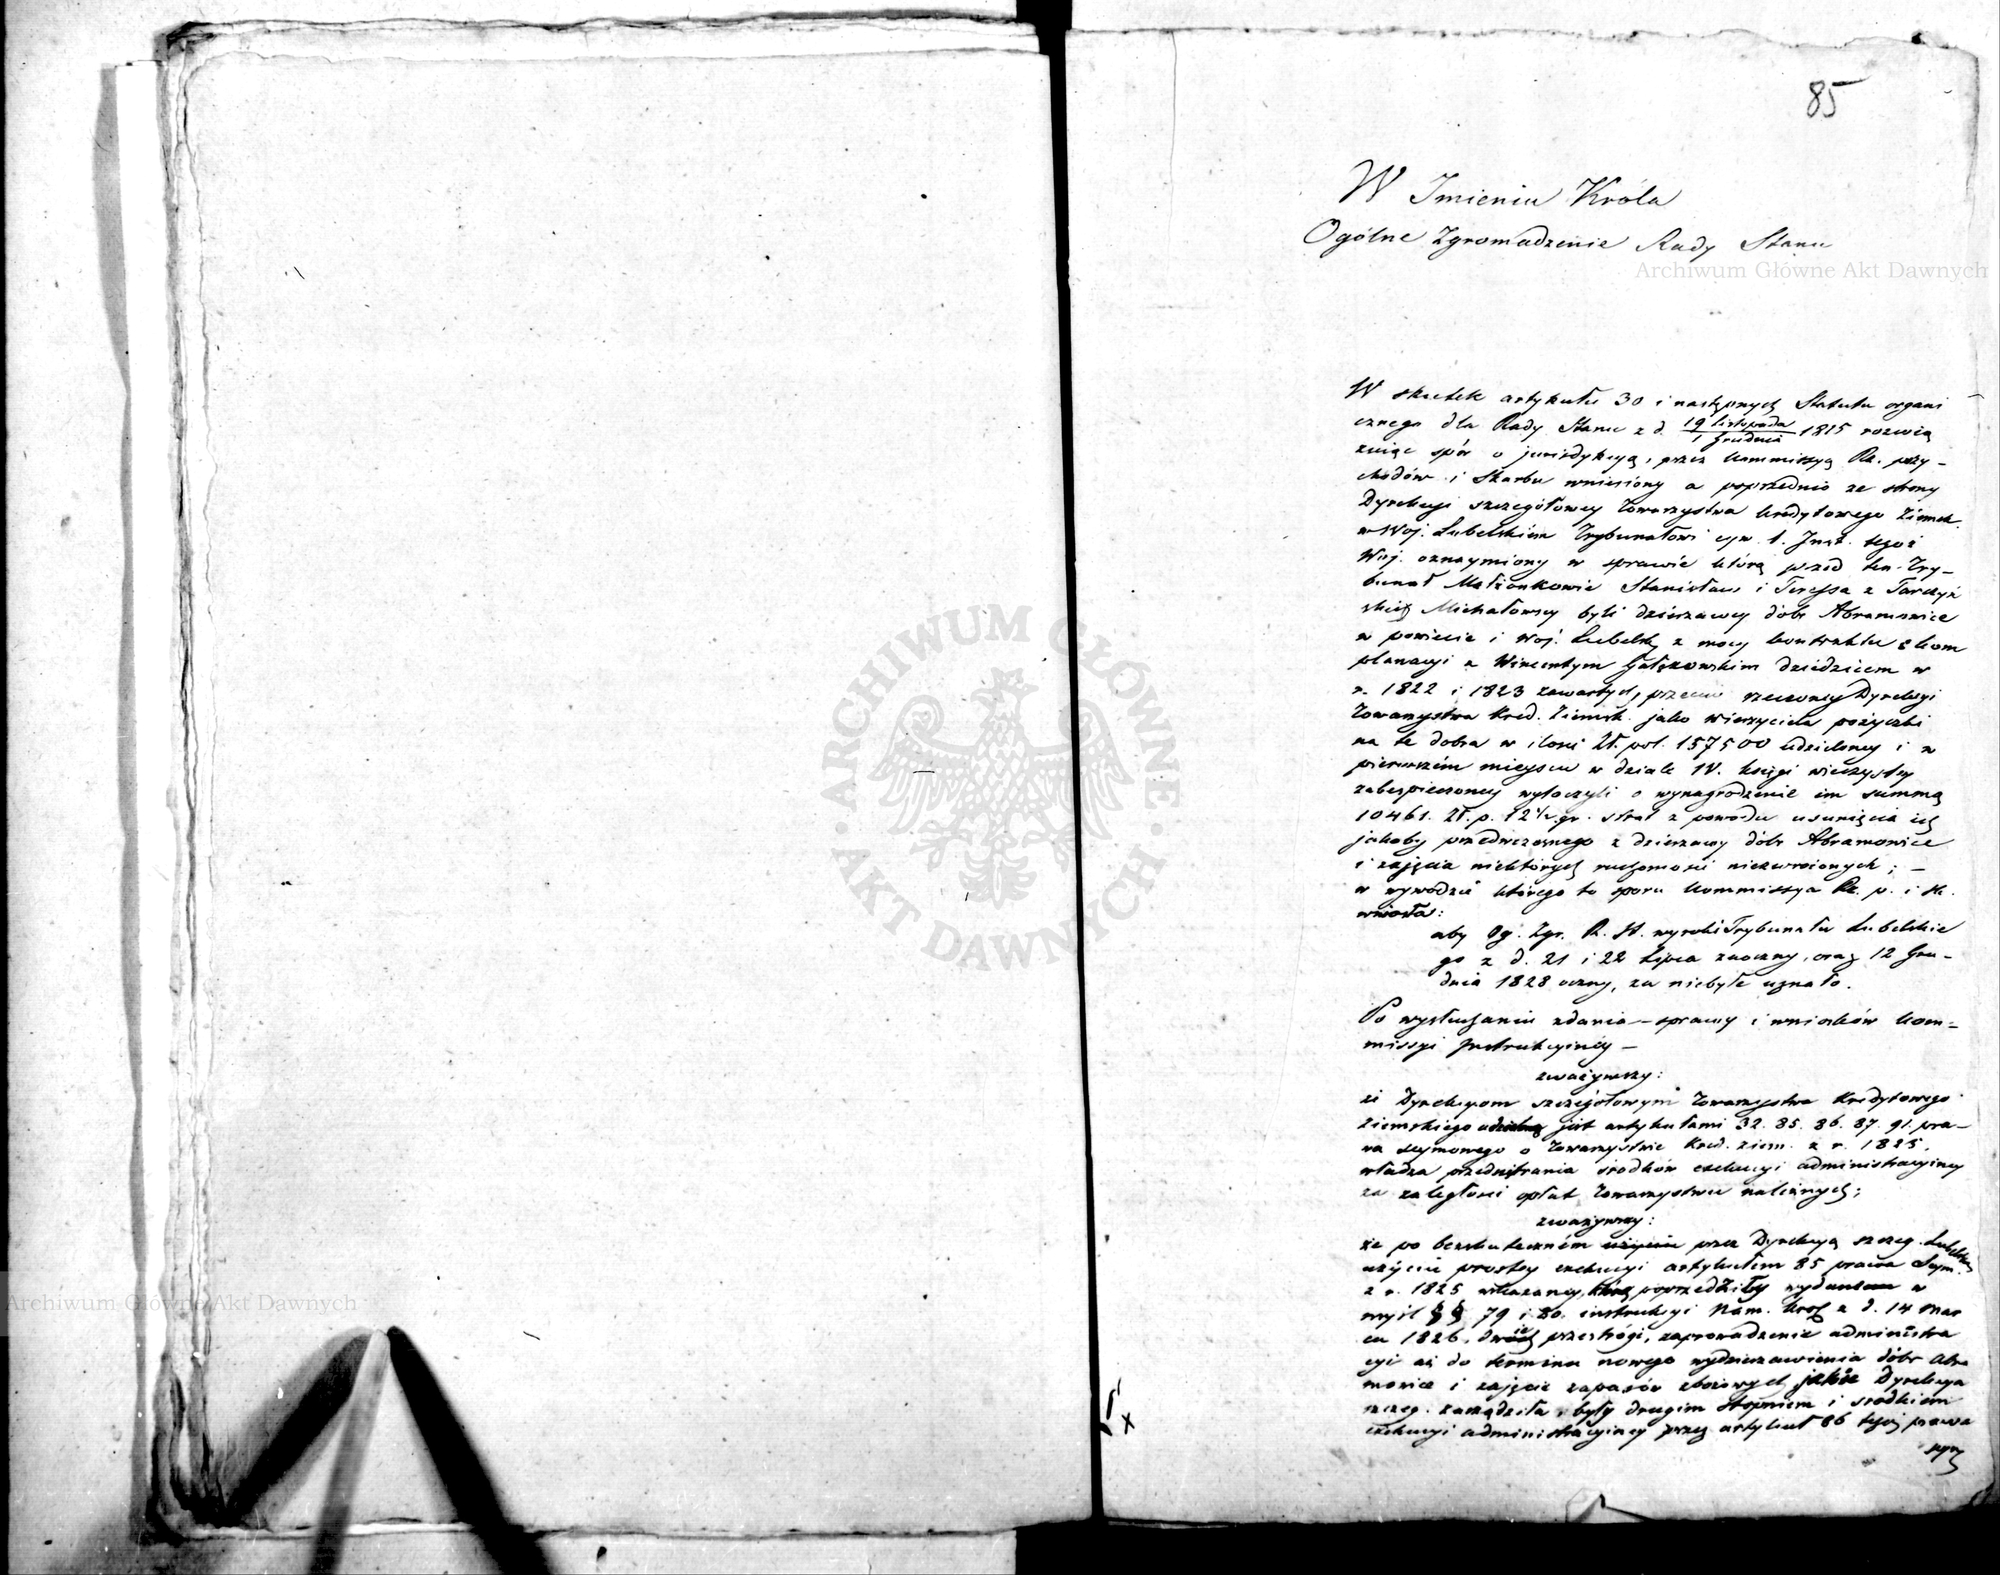 85
W Imieniu Króla
Ogólne Zgromadzenie Rady Stanu
Archiwum Główne Akt Dawnych
W skutek artykułu 30 i następnych Statutu organi
cznego dla Rady Stanu z d. 19 listopada / 1 Grudnia 1815 rozwią
zując spór o jurisdykcyą, przez Kommissyą Rz. przy-
chodów i Skarbu wniesiony a poprzednio ze strony
Dyrekcyi szczegółowey Towarzystwa kredytowego Ziemsk.
w Woj. Lubelskiem Trybunałowi cyw. 1. Inst. tegoż
Woj. oznaymiony w sprawie którą przed ten Try-
bunał Małżonkowie Stanisław i Teressa z Tarczyń
skich Michałowscy byli dzierżawcy dóbr Abramowice
w powiecie i Woj. Lubelsk. z mocy kontraktu i kom
planacyi z Wincentym Gałęzowskim dziedzicem w
r. 1822 i 1823 zawartych, przeciw rzeczoney Dyrekcyi
Towarzystwa Kred. Ziemsk. jako wierzyciela pożyczki
na te dobra w ilości Zł. pol. 157500 udzieloney i w
pierwszém mieyscu w dziale IV. księgi wieczystey
zabezpieczoney wytoczyli o wynagrodzenie im summą
10461. Zł. p. 12 1/2 gr. strat z powodu usunięcia ich
jakoby przedwczesnego z dzierżawy dóbr Abramowice
i zajęcia niektórych ruchomości niezwróconych; —
w wywodzie którego to sporu Kommissya Rz. p. i sk.
wniosła:
aby Og. Zgr. R. St. wyroki Trybunału Lubelskie
go z d. 21 i 22 Lipca zaoczny, oraz 12 Gru-
dnia 1828 oczny, za niebyłe uznało.
Po wysłuchaniu zdania-sprawy i wniosków Kom-
missyi Instrukcyiney —
zważywszy:
że Dyrekcyom szczegółowym Towarzystwa Kredytowego
Ziemskiego jest artykułami 32. 85. 86. 87. 91. pra-
wa seymowego o Towarzystwie Kred. Ziem. z r. 1825,
władza przedsiębrania środków exekucyi administracyiney
za zaległości opłat Towarzystwu należnych;
zważywszy:
że po bezskuteczném przez Dyrekcyą szczeg. Lubelską
użyciu prostey exekucyi artykułem 85 prawa Seym.
z r. 1825 wskazaney, poprzedziły w
myśl §§ 79 i 80. instrukcyi Nam. Król. z d. 14 Mar
ca 1826. przestrogi, zaprowadzenie administra
cyi aż do terminu nowego wydzierżawienia dóbr Abra
mowice i zajęcie zapasów zbożowych jakie Dyrekcya
szczeg. zarządziła, były drugim stopniem i srodkiem
exekucyi administracyiney przez artykuł 86 tegoż prawa
Archiwum Główne Akt Dawnych
ARCHIWUM GŁÓWNE
AKT DAWNYCH